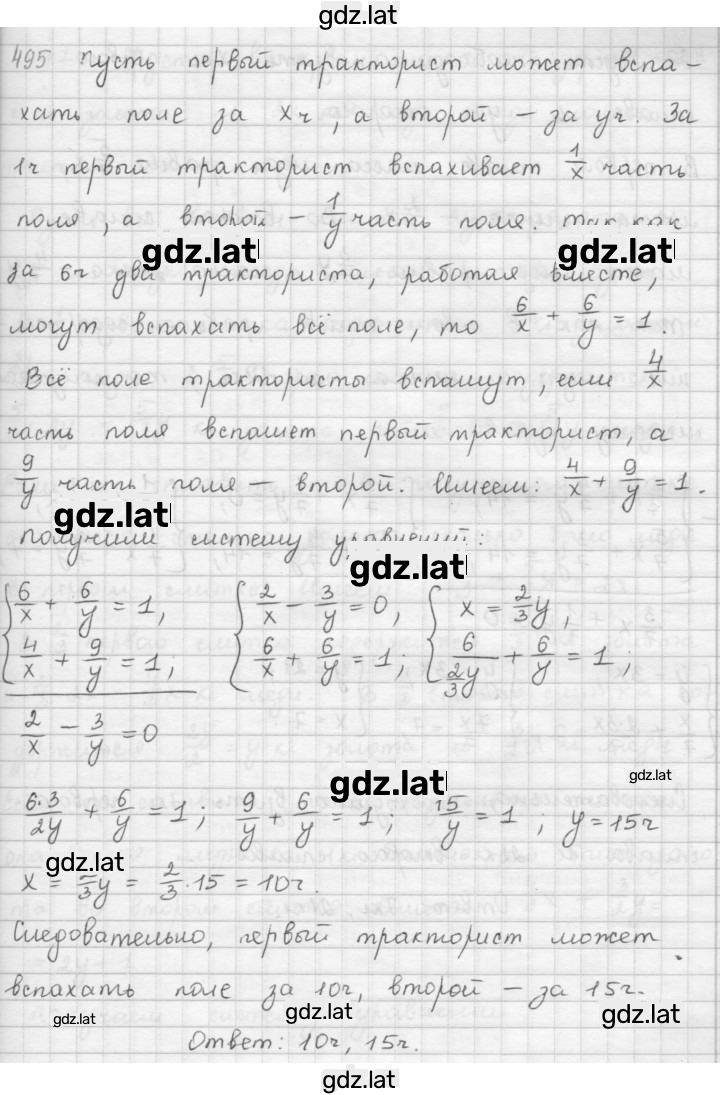 gdz.lat
495 Пусть первый тракторист может вспа-
хать поле за xч, а второй – за yч За
1ч первый тракторист вспахивает 1/x часть
поля, а второй – 1/y часть поля. так как
gdz.lat gdz.lat
за 6ч два тракториста, работая вместе,
могут вспахать всё поле, то 6/x + 6/y = 1.
Всё поле трактористы вспашут, если 4/x
часть поля вспашет первый тракторист, а
9/y часть поля – второй. Имеем: 4/x + 9/y = 1.
gdz.lat
получили систему уравнений:
gdz.lat
{ 6/x + 6/y = 1, { 2/x - 3/y = 0, { x = 2/3 y,
4/x + 9/y = 1; 6/x + 6/y = 1; 6/(2/3 y) + 6/y = 1;
2/x - 3/y = 0
gdz.lat gdz.lat
6·3/2y + 6/y = 1; 9/y + 6/y = 1; 15/y = 1; y = 15ч
gdz.lat
x = 2/3 y = 2/3 · 15 = 10ч.
Следовательно, первый тракторист может
вспахать поле за 10ч, второй – за 15ч.
gdz.lat gdz.lat gdz.lat
Ответ: 10ч, 15ч.
gdz.lat